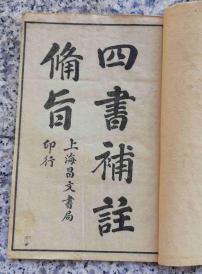 四書補註
備旨
上海昌文書局
印行